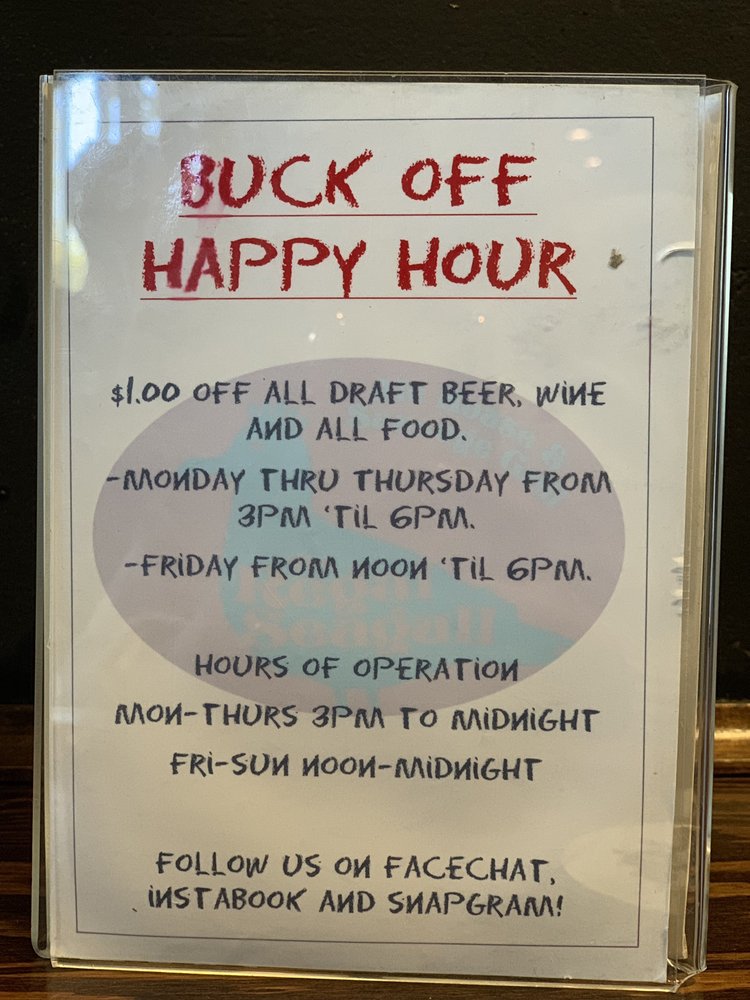 BUCK OFF
HAPPY HOUR
$1.00 OFF ALL DRAFT BEER, WINE
AND ALL FOOD.
-MONDAY THRU THURSDAY FROM
3PM 'TIL 6PM.
-FRIDAY FROM NOON 'TIL 6PM.
HOURS OF OPERATION
MON-THURS 3PM TO MIDNIGHT
FRI-SUN NOON-MIDNIGHT
FOLLOW US ON FACECHAT,
INSTABOOK AND SNAPGRAM!